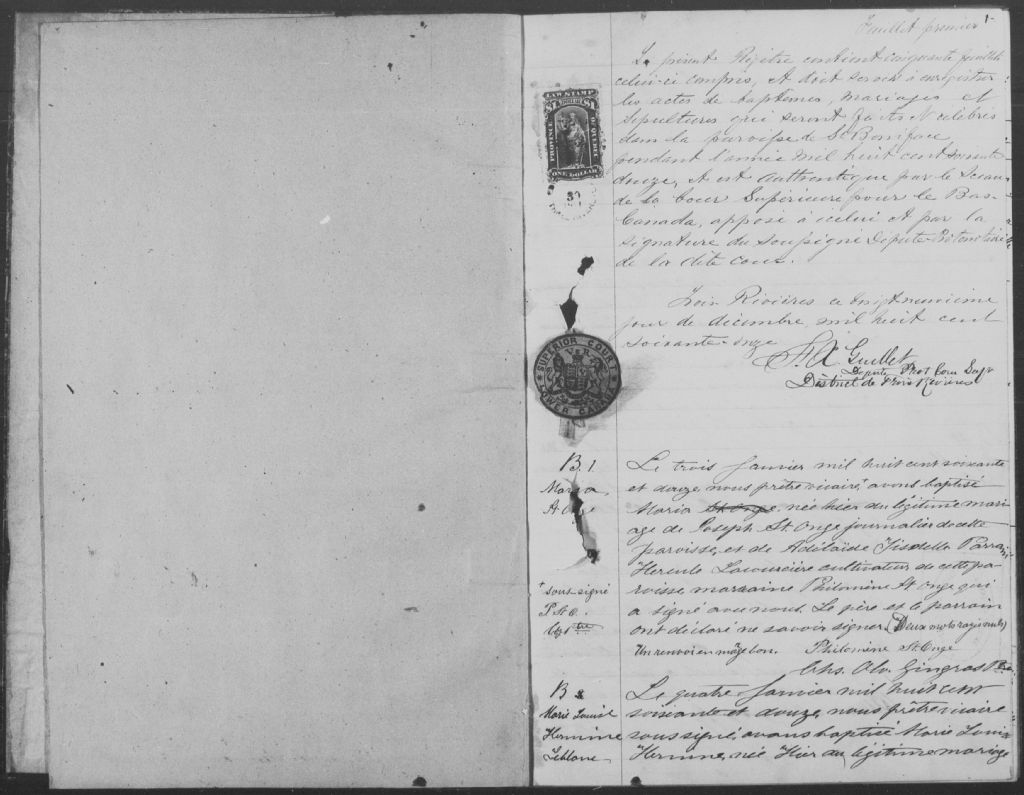 Feuillet premier 1
Le présent Régitre contient cinquante feuillets
celui-ci compris, et doit servir à enregistrer
les actes de baptêmes, mariages et
sépultures qui seront faits et célébrés
dans la paroisse de St Boniface
pendant l'année mil huit cent soixante
douze, et est authentiqué par le Sceau
de la Cour Supérieure pour le Bas-
Canada, apposé à icelui et par la
signature du soussigné Député Protonotaire
de la dite Cour.
LAW STAMP
DOLLAR
PROVINCE OF QUEBEC
ONE DOLLAR
Trois Rivières ce vingt neuvième
jour de décembre mil huit cent
soixante-onze
Guillet
Député Prot Cour Supr
District de Trois Rivières
SUPERIOR COURT
LOWER CANADA
B. 1
Maria
St Onge
Le trois Janvier mil huit cent soixante
et douze nous prêtre vicaire + avons baptisé
Maria St Onge, née hier du légitime mari-
age de Joseph St. Onge journalier de cette
paroisse, et de Adélaïde Parrain
Hercule Lacourcière cultivateur de cette pa-
roisse marraine Philomène St Onge qui
a signé avec nous. Le père et le parrain
ont déclaré ne savoir signer. (Deux mots rayés nuls)
Un renvoi en marge bon. Philomène St. Onge
Chs. Olv. Gingras Ptre
+ sous-signé
P. St. O.
B 2
Marie Louise
Hermine
Leblanc
Le quatre Janvier mil huit cent
soixante et douze, nous prêtre vicaire
sous signé, avons baptisé Marie Louise
Hermine, née Hier du légitime mariage